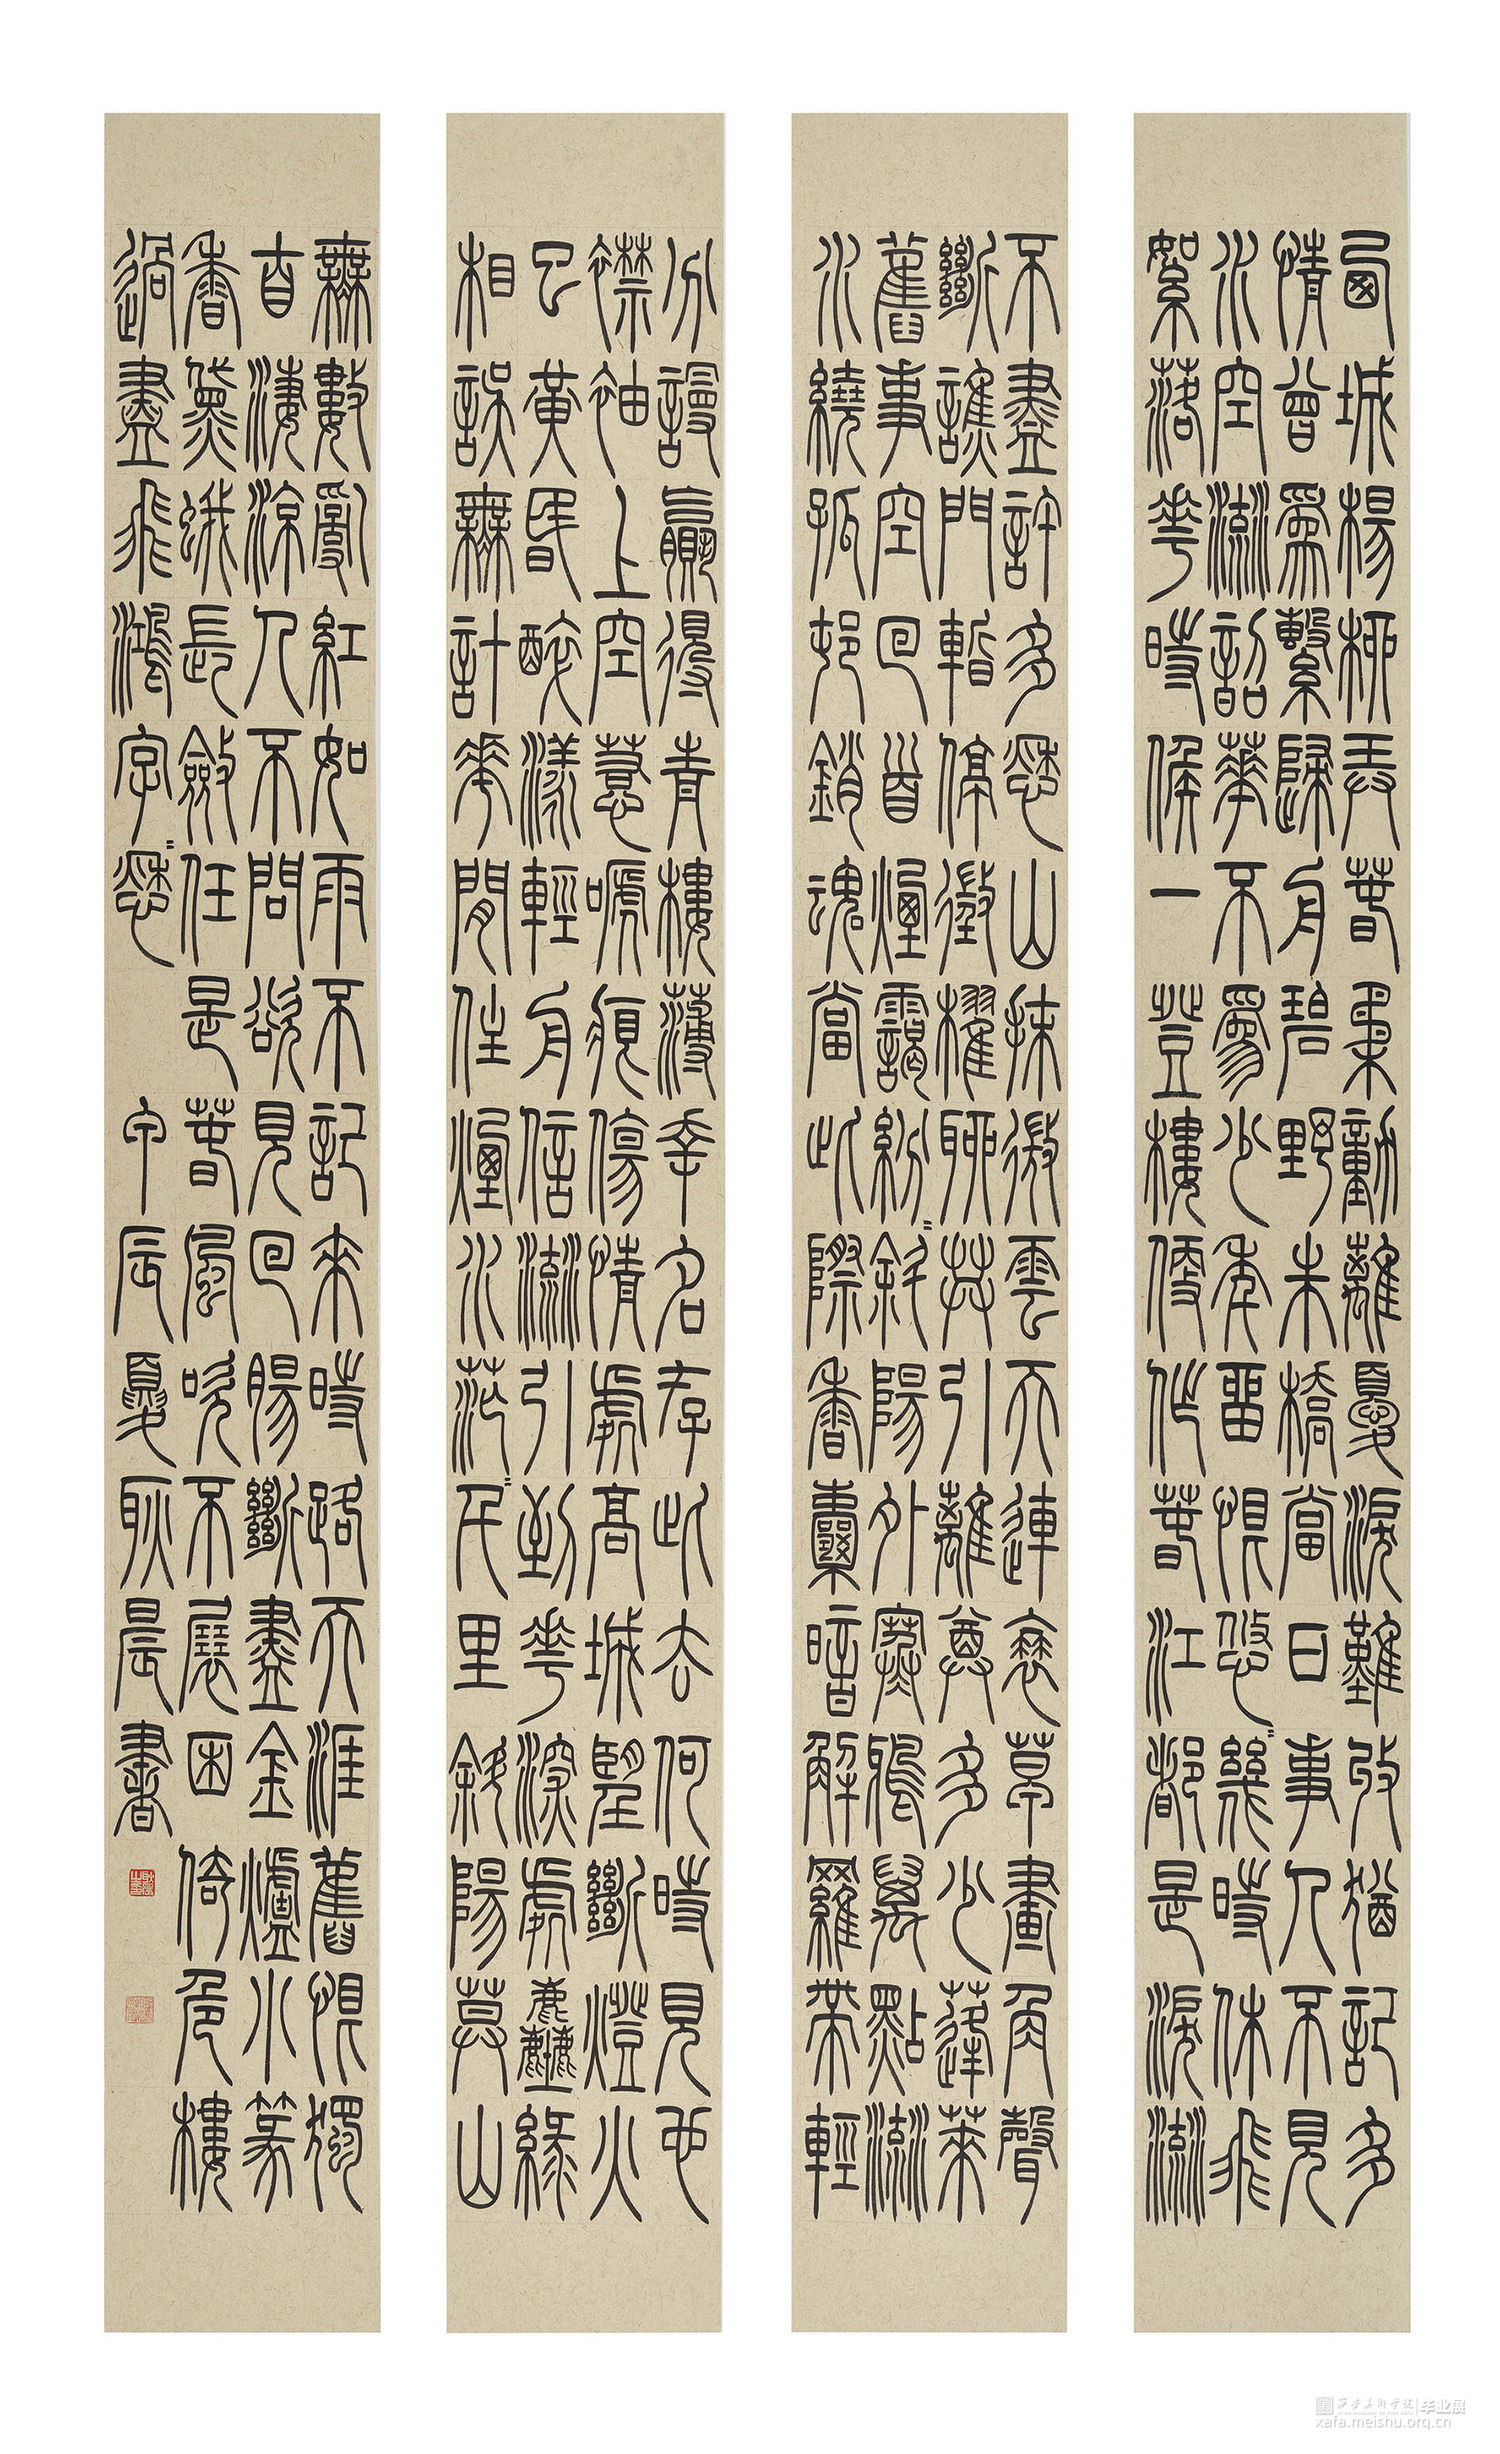 西城楊柳弄春柔動離憂淚難收猶記多
情曾為繫歸舟碧野朱橋當日事人不見
水空流韶華不為少年留恨悠〻幾時休飛
絮落花時候一登樓便作春江都是淚流
不盡許多愁山抹微雲天連衰草畫角聲
斷譙門暫停徵櫂聊共引離尊多少蓬萊
舊事空回首煙靄紛〻斜陽外寒鴉萬點流
水繞孤村銷魂當此際香囊暗解羅帶輕
分謾贏得青樓薄幸名存此去何時見也
襟袖上空惹嗁痕傷情處高城望斷燈火
已黃昏醉漾輕舟信流引到花深處塵緣
相誤無計花間住煙水茫〻千里斜陽暮山
無數亂紅如雨不記來時路天涯舊恨獨
自淒涼人不問欲見回腸斷盡金爐小篆
香黛蛾長斂任是春風吹不展困倚危樓
過盡飛鴻字〻愁
甲辰夏耿晨書
西安美術學院 毕业展
xafa.meishu.org.cn